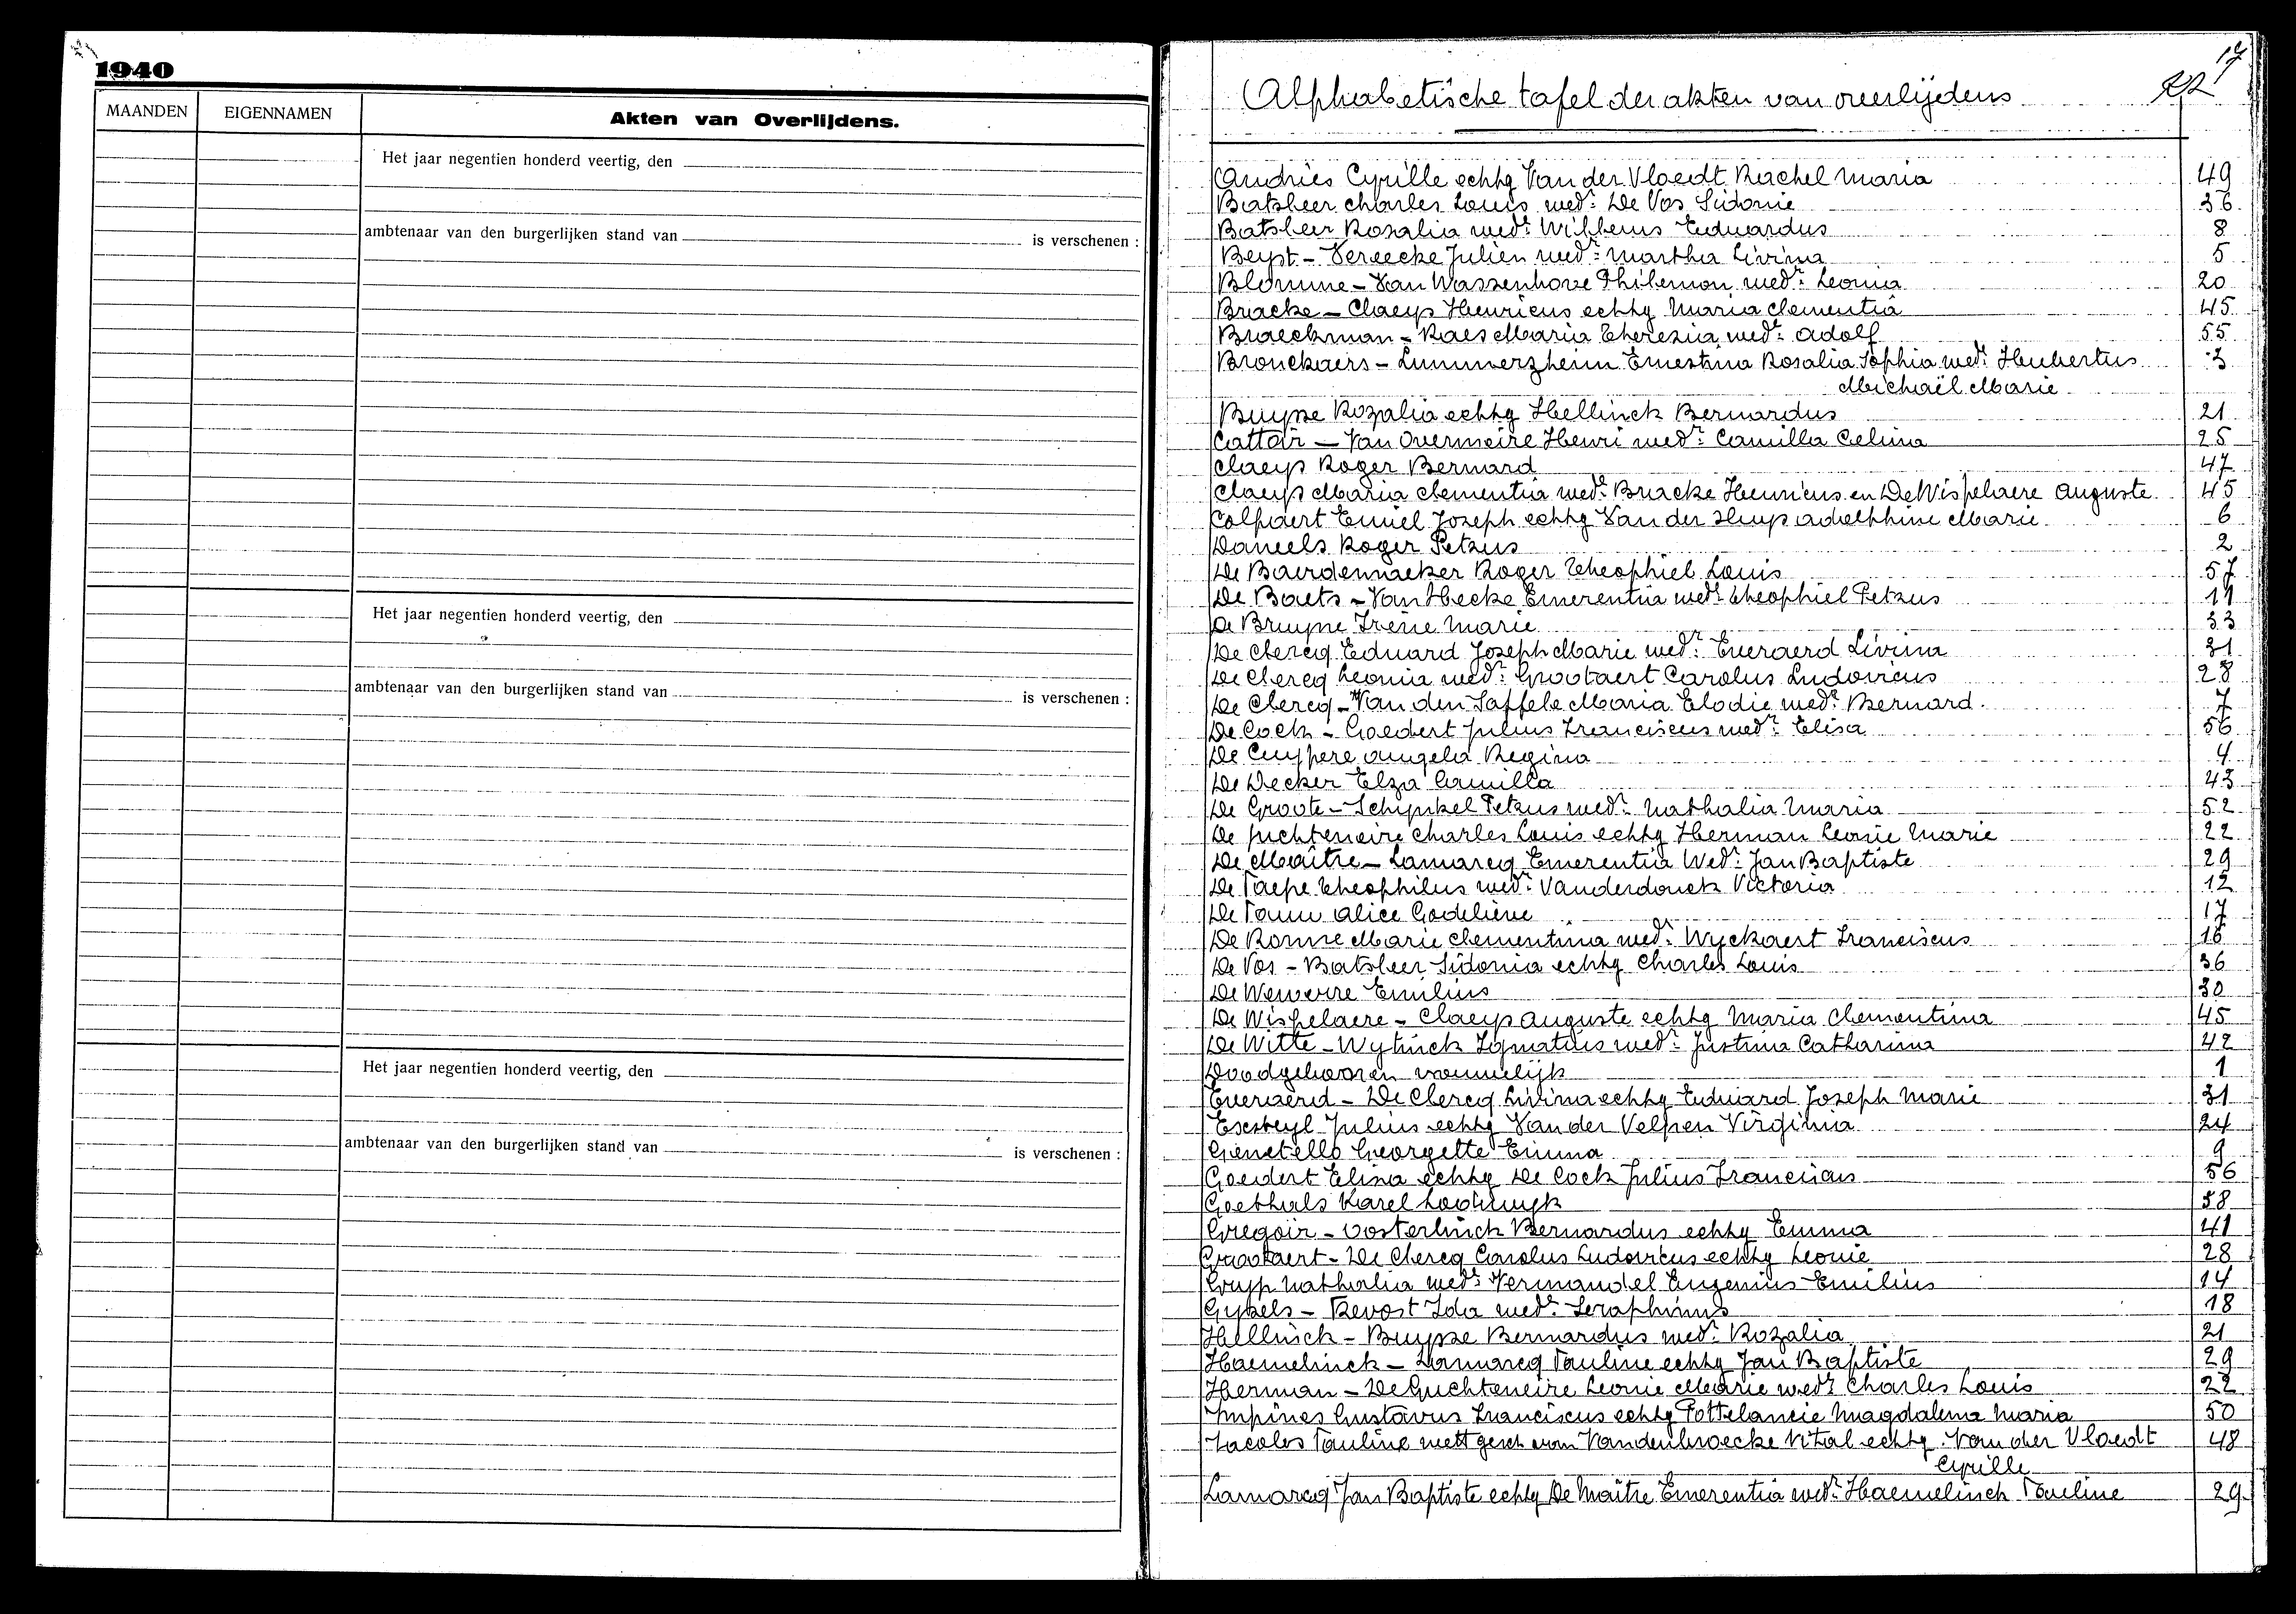 1940
MAANDEN
EIGENNAMEN
Akten van Overlijdens.
Het jaar negentien honderd veertig, den
ambtenaar van den burgerlijken stand van is verschenen :
Het jaar negentien honderd veertig, den
ambtenaar van den burgerlijken stand van is verschenen :
Het jaar negentien honderd veertig, den
ambtenaar van den burgerlijken stand van is verschenen :
17
Alphabetische tafel der akten van overlijdens
Andries Cyrille echtg Van der Vloedt Rachel Maria 49
Batsleer Charles Louis wedr: De Vos Sidonie 36
Batsleer Rozalia wedr: Willems Eduardus 8
Beyst - Vereecke Julien wedr: Martha Livina 5
Blomme - Van Wassenhove Philemon wedr: Leonia 20
Bracke - Claeys Henricus echtg Maria Clementia 45
Braeckman - Raes Maria Therezia wedr: Adolf 55
Bronckaers - Lummerzheim Ernestina Rosalia Sophia wedr: Hubertus 3
Michaël Marie
Buysse Rozalia echtg Hellinck Bernardus 21
Cattoir - Van Overmeire Henri wedr: Camilla Celina 25
Claeys Roger Bernard 47
Claeys Maria Clementia wedr: Bracke Henricus en De Wispelaere Auguste 45
Colpaert Emiel Joseph echtg Van der Adelphine Marie 6
Daneels Roger Petrus 2
De Baerdemaeker Roger Theophiel Louis 57
De Baets - Van Hecke Emerentia wedr: Theophiel Petrus 11
De Bruyne Irène Marie 33
De Clercq Eduard Joseph Marie wedr: Everaerd Livina 31
De Clercq Leonia wedr: Grootaert Carolus Ludovicus 28
De Clercq - Van den Saffele Maria Elodie wedr: Bernard 7
De Cock - Goedert Julius Franciscus wedr: Elisa 56
De Cuypere Angela Regina 4
De Decker Elza Camilla 43
De Groote - Schynkel Petrus wedr: Nathalia Maria 52
De Juchteneire Charles Louis echtg Herman Leonie Marie 22
De Maître - Lamarcq Emerentia Wedr: Jan Baptiste 29
De Paepe Theophilus wedr: Vanderdonck Victoria 12
De Pauw Alice Godelieve 17
De Ronne Marie Clementina wedr: Wyckaert Franciscus 16
De Vos - Batsleer Sidonia echtg Charles Louis 36
De Weweire Emilius 30
De Wispelaere - Claeys Auguste echtg Maria Clementina 45
De Witte - Wytinck Ignatius wedr: Justina Catharina 42
Doodgeboren vrouwelijk 1
Everaerd - De Clercq Livina echtg Eduard Joseph Marie 31
Julius echtg Van der Velpen Virginia 24
Genetello Georgette Emma 9
Goedert Elisa echtg De Cock Julius Franciscus 56
Goethals Karel Lodewijk 58
Gregoir - Oosterlinck Bernardus echtg Emma 41
Grootaert - De Clercq Carolus Ludovicus echtg Leonie 28
Gryp Nathalia wedr: Vermandel Eugenius Emilius 14
Gykels - Bevost Ida wedr: Seraphinus 18
Hellinck - Buysse Bernardus wedr: Rozalia 21
Haemelinck - Lamarcq Pauline echtg Jan Baptiste 29
Herman - De Guchteneire Leonie Marie wedr Charles Louis 22
Impines Gustavus Franciscus echtg Pottelancie Magdalena Maria 50
Jacobs Pauline wett gesch van Vandenbroecke Vital echtg Van der Vloedt 48
Cyrille
Lamarcq Jan Baptiste echtg De Maître Emerentia wedr: Haemelinck Pauline 29